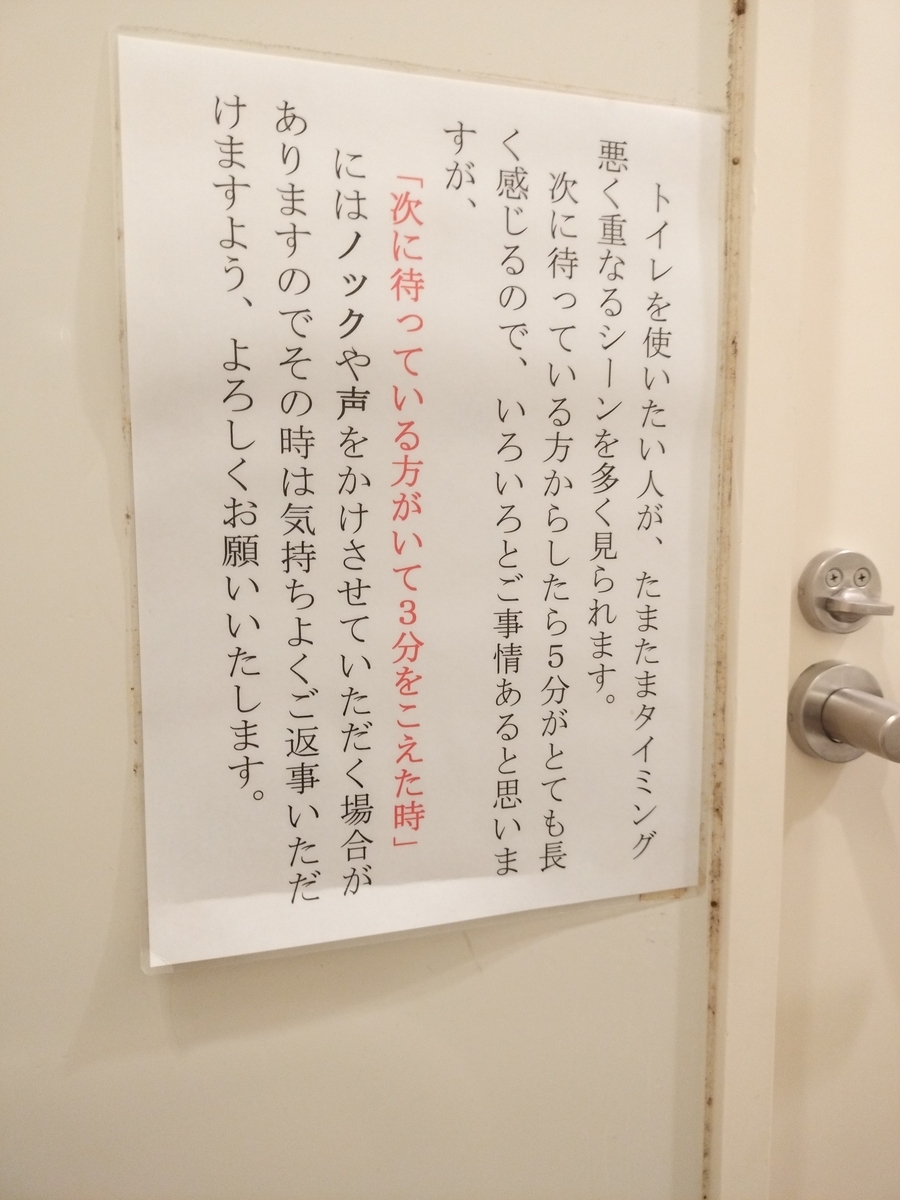 トイレを使いたい人が、たまたまタイミング
悪く重なるシーンを多く見られます。
次に待っている方からしたら５分がとても長
く感じるので、いろいろとご事情あると思いま
すが、
「次に待っている方がいて３分をこえた時」
にはノックや声をかけさせていただく場合が
ありますのでその時は気持ちよくご返事いただ
けますよう、よろしくお願いいたします。